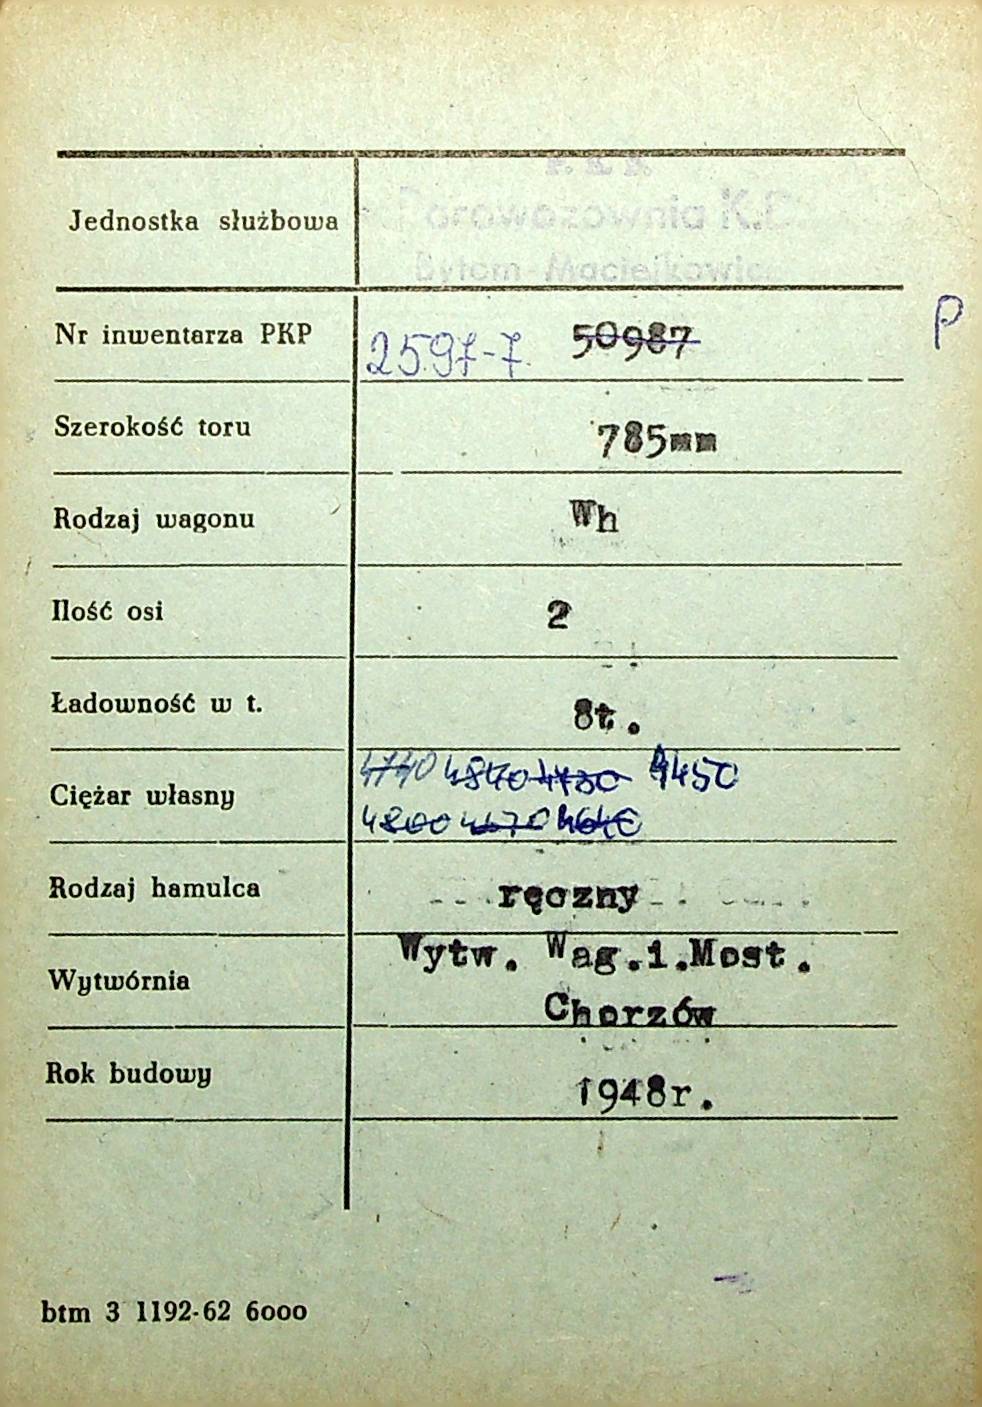 P. K. P.
Parowozownia K.D
Bytom-Maciejkowice
Jednostka służbowa
Nr inwentarza PKP 2597-7 50987
P
Szerokość toru 785mm
Rodzaj wagonu Wh
Ilość osi 2
Ładowność w t. 8t.
4740 4840 4730 4450
Ciężar własny
4800 4670 4640
Rodzaj hamulca ręczny
Wytw. Wag.i.Most.
Wytwórnia
Chorzów
Rok budowy 1948r.
btm 3 1192-62 6000